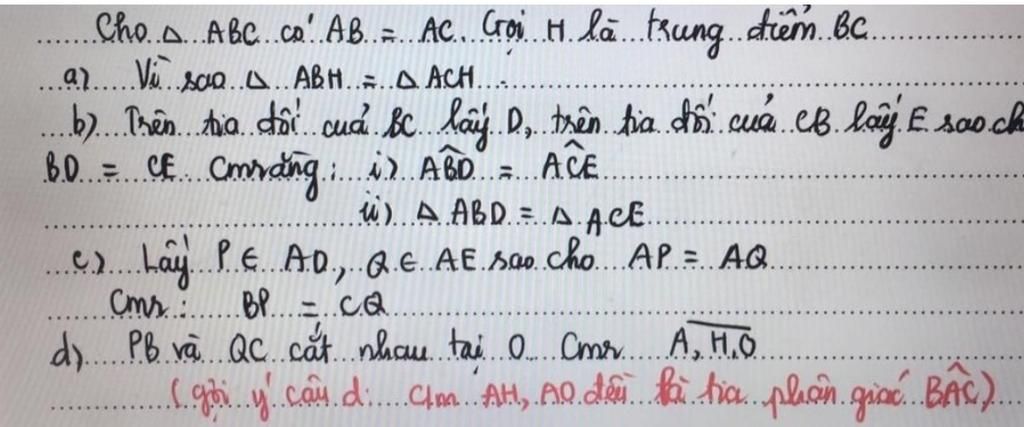 Cho Δ ABC có AB = AC. Gọi H là trung điểm BC
a) Vì sao Δ ABH = Δ ACH
b) Trên tia đối cuả BC lấy D, trên tia đối cuả CB lấy E sao ch
BD = CE Cmrằng: i) ABD̂ = AĈE
ii) Δ ABD = Δ ACE
c) Lấy P ∈ AD, Q ∈ AE sao cho AP = AQ
Cmr: BP = CQ
d) PB và QC cắt nhau tại O Cmr A, H, O
(gợi ý câu d: Cm AH, AO đều là tia phân giác BÂC)